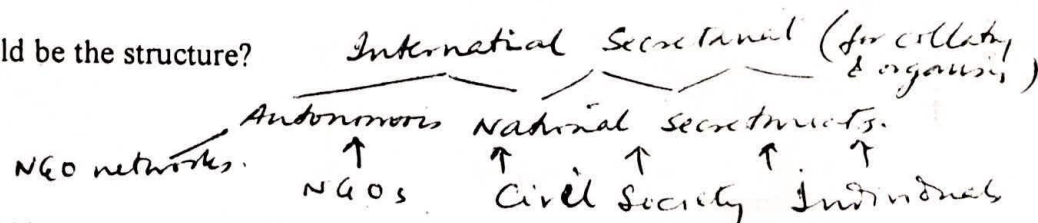 ld be the structure? International Secretariat (for collating
& organising)
Autonomous National Secretariats.
NGO networks.
NGOs Civil Society Individuals